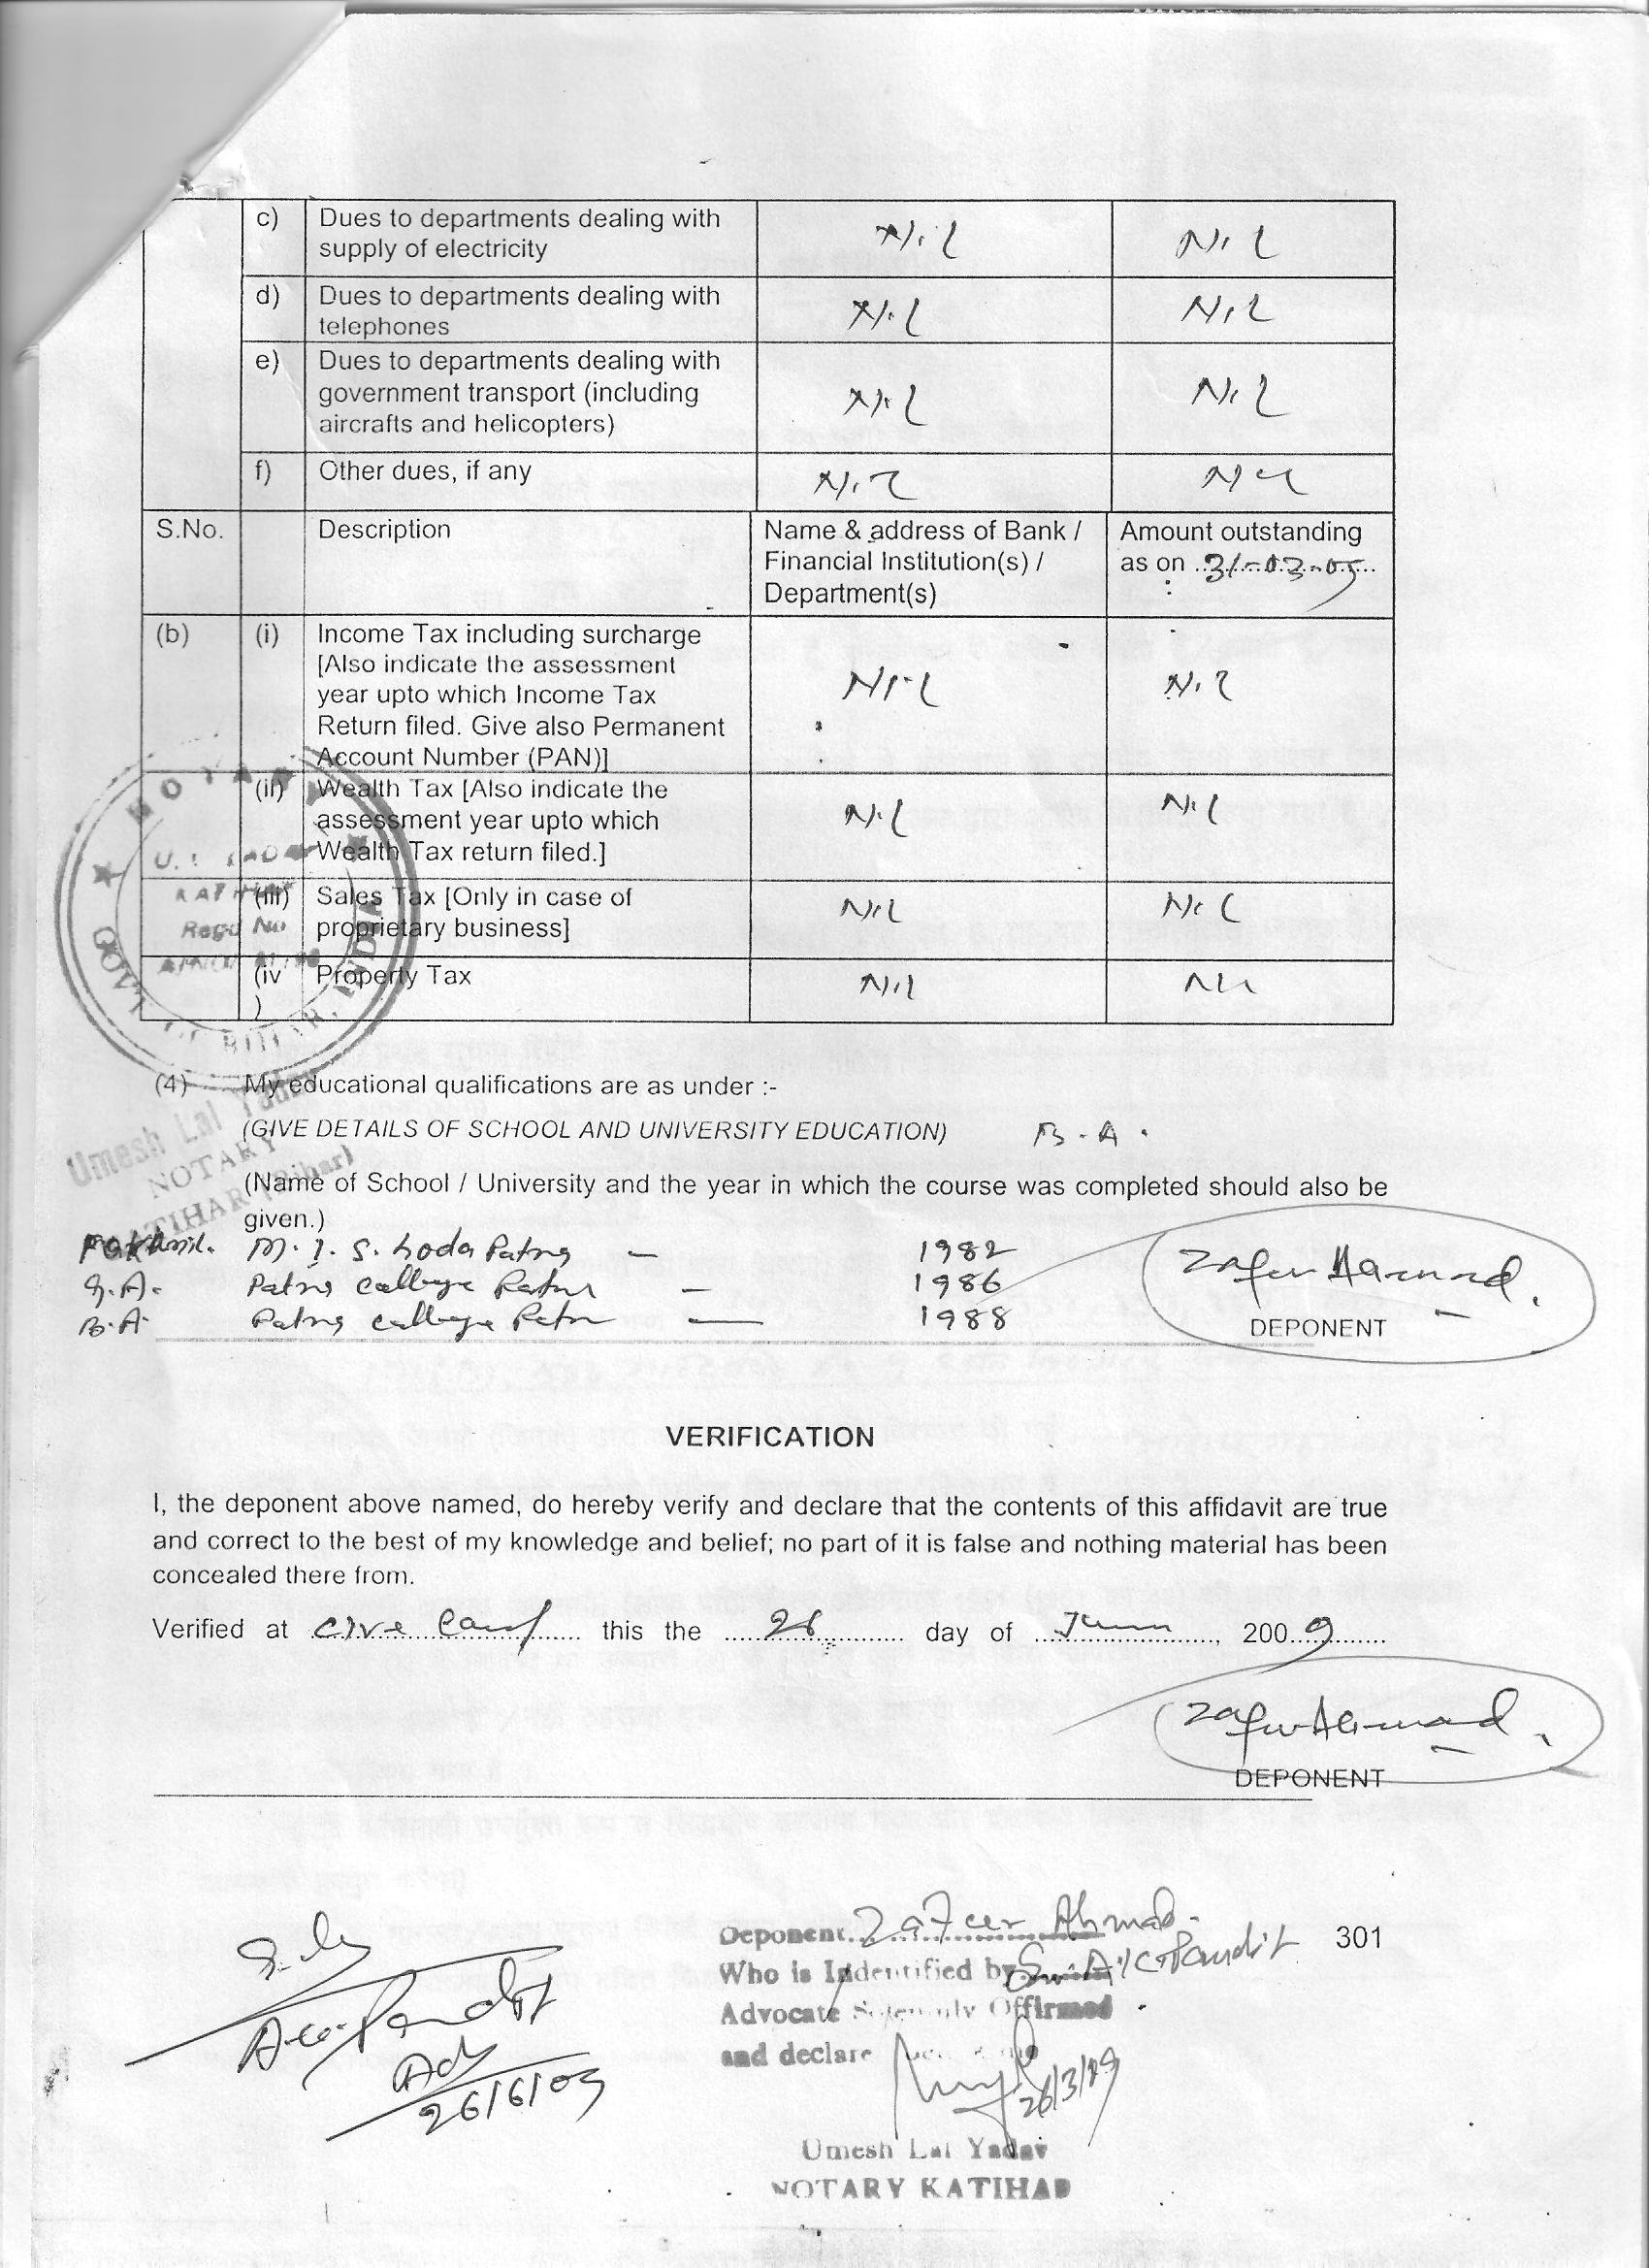 c) Dues to departments dealing with Nil Nil
supply of electricity
d) Dues to departments dealing with Nil Nil
telephones
e) Dues to departments dealing with
government transport (including Nil Nil
aircrafts and helicopters)
f) Other dues, if any Nil Nil
S.No. Description Name & address of Bank / Amount outstanding
Financial Institution(s) / as on 31-03-09
Department(s)
(b) (i) Income Tax including surcharge
[Also indicate the assessment
year upto which Income Tax Nil Nil
Return filed. Give also Permanent
Account Number (PAN)]
(ii) Wealth Tax [Also indicate the
assessment year upto which Nil Nil
Wealth Tax return filed.]
(iii) Sales Tax [Only in case of Nil Nil
proprietary business]
(iv) Property Tax Nil Nil
NOTARY
KATIHAR
Regd No
GOVT. OF BIHAR, INDIA
(4) My educational qualifications are as under :-
(GIVE DETAILS OF SCHOOL AND UNIVERSITY EDUCATION) B.A.
Umesh Lal Yadav
NOTARY
KATIHAR (Bihar)
(Name of School / University and the year in which the course was completed should also be
given.)
M. I. S. Patna — 1982
I.A. Patna College Patna — 1986
B.A. Patna College Patna — 1988
Zafer Ahmad.
DEPONENT
VERIFICATION
I, the deponent above named, do hereby verify and declare that the contents of this affidavit are true
and correct to the best of my knowledge and belief; no part of it is false and nothing material has been
concealed there from.
Verified at this the 26 day of June, 2009
Zafer Ahmad.
DEPONENT
Deponent Zafeer Ahmad
Who is Indentified by Sri A.K. Pandit 301
Advocate Solemnly Offirmed
and declare
26/3/09
Umesh Lal Yadav
NOTARY KATIHAR
A.K. Pandit
Adv
26/6/09